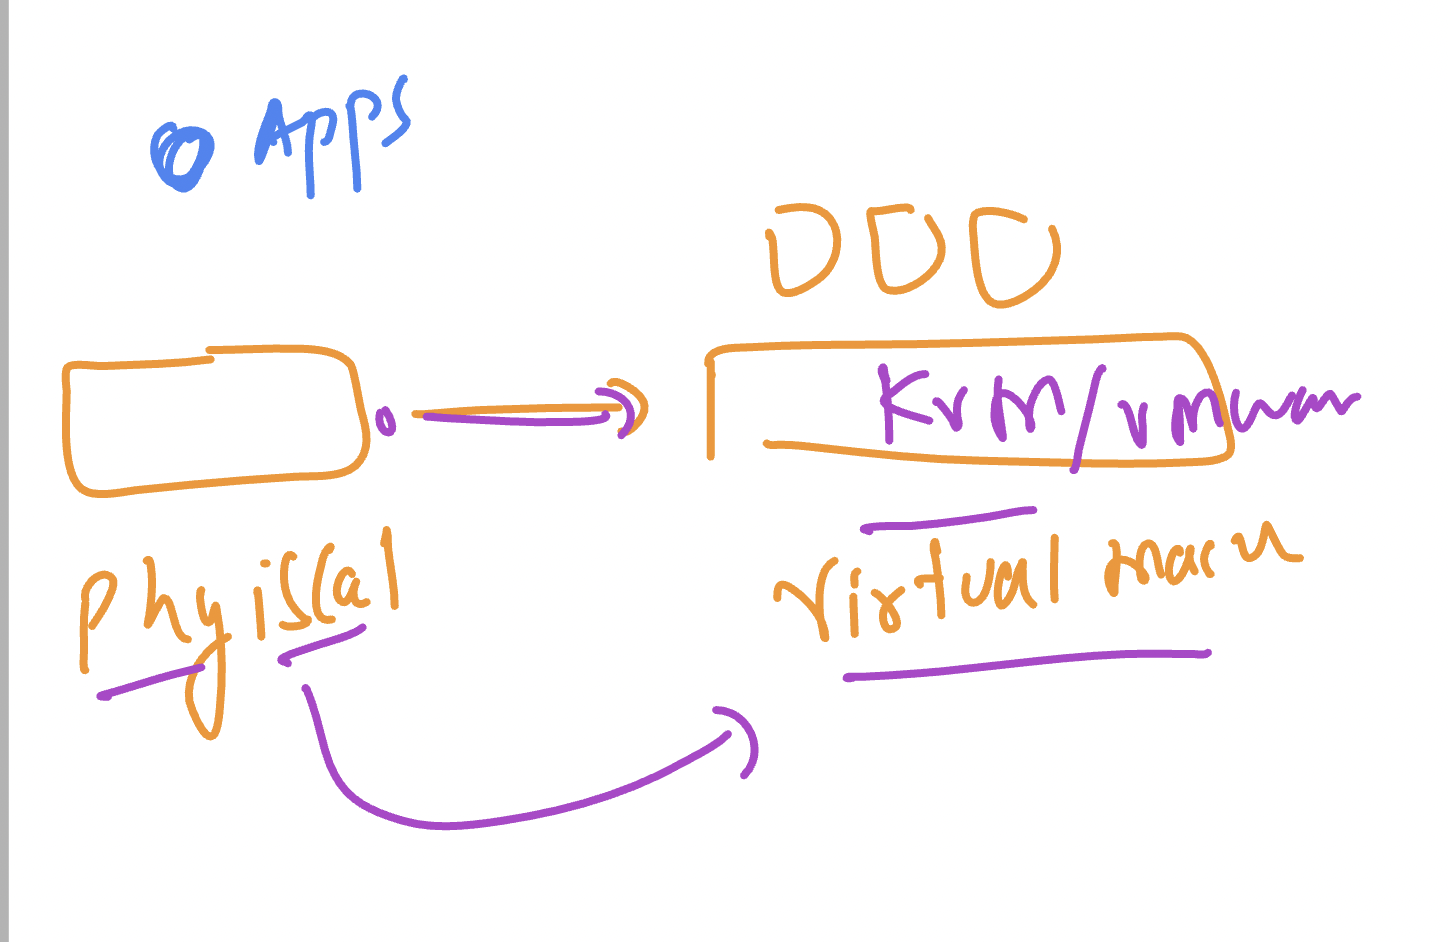 Apps
KVM/vmwar
Phyiscal
Virtual mach